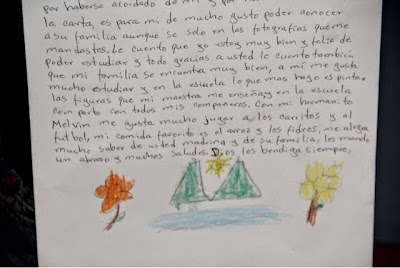 por haberse acordado de mi y por
la carta, es para mi de mucho gusto poder conocer
a su familia aunque se solo en las fotografias que me
mandastes. Le cuento que yo estoy muy bien y feliz de
poder estudiar y todo gracias a usted le cuento también
que mi familia se encuentra muy bien, a mi me gusta
mucho estudiar y en la escuela lo que mas hago es pintar
las figuras que mi maestra me enseña, en la escuela
comparto con todos mis compañeros. Con mi hermanito
Melvin me gusta mucho jugar a los carritos y al
futbol, mi comida favorita es el arroz y los fideos, me alegra
mucho saber de usted madrina y de su familia, les mando
un abrazo y muchos saludos. Dios los bendiga siempre.